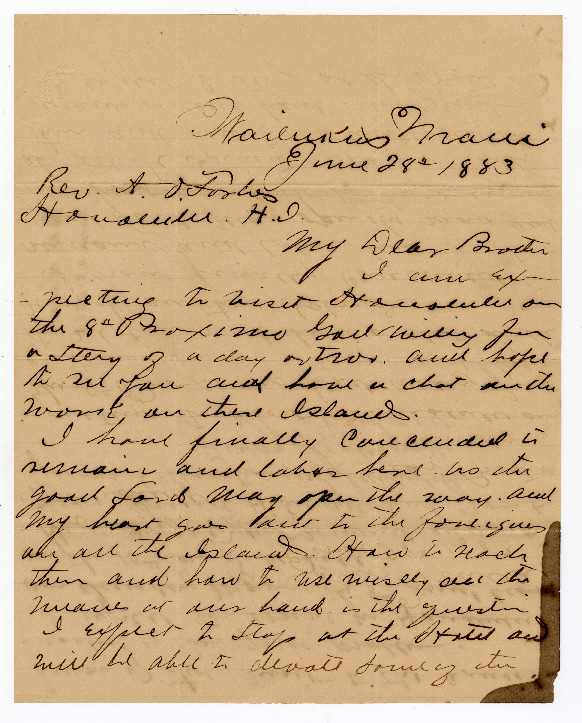 Wailuku Maui
June 28th 1883
Rev. A. O. Forbes
Honolulu. H.I.
My Dear Brother
I am ex-
-pecting to visit Honolulu on
the 8th Proximo God willing for
a stay of a day or two. and hope
to see you and have a chat on the
work on these Islands.
I have finally concluded to
remain and labor here as the
good Lord may open the way. and
my heart goes out to the foreigners
on all the Islands. How to reach
them and how to use wisely all the
means at our hand is the question
I expect to stop at the Hotel and
will be able to devote some of the